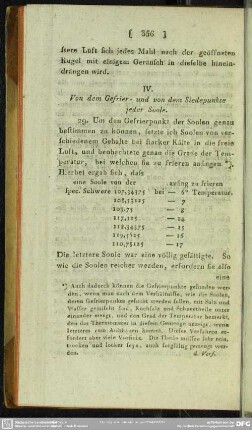 [ 356 ]
ſtere Luft ſich jedes Mahl nach der geöffneten
Kugel mit einigem Geräuſch in dieſelbe hinein-
drängen wird.
IV.
Von dem Gefrier- und von dem Siedepunkte
jeder Soole.
29. Um den Gefrierpunkt der Soolen genau
beſtimmen zu können, ſetzte ich Soolen von ver-
ſchiedenem Gehalte bei ſtarker Kälte in die freie
Luft, und beobachtete genau die Grade der Tem-
peratur, bei welchen ſie zu frieren anfingen *).
Hierbei ergab ſich, daſs
eine Soole von der anfing zu frieren
ſpec. Schwere 107,34375 bei — 6° Temperatur.
108,53125 — 7
109,75 — 8
117,125 — 14
118,34375 — 15
119,53125 — 16
— 17
Die letztere Soole war eine völlig geſättigte. So
wie die Soolen reicher werden, erfordern ſie alſo
eine
*) Auch dadurch können die Gefrierpunkte gefunden wer-
den, wenn man nach dem Verhältniſſe, wie die Soolen,
deren Gefrierpunkte geſucht werden ſollen, mit Salz und
Waſſer gemiſcht ſind, Kochſalz und Schneetheile unter
einander mengt, und den Grad der Temperatur bemerkt,
den das Thermometer in dieſem Gemenge anzeigt, wenn
letzteres zum Aufthauen kommt. Dieſes Verfahren er-
fordert aber viele Vorſicht. Die Theile müſſen ſehr rein,
trocken und locker ſeyn, auch ſorgfältig gemengt wer-
den. d. Verf.